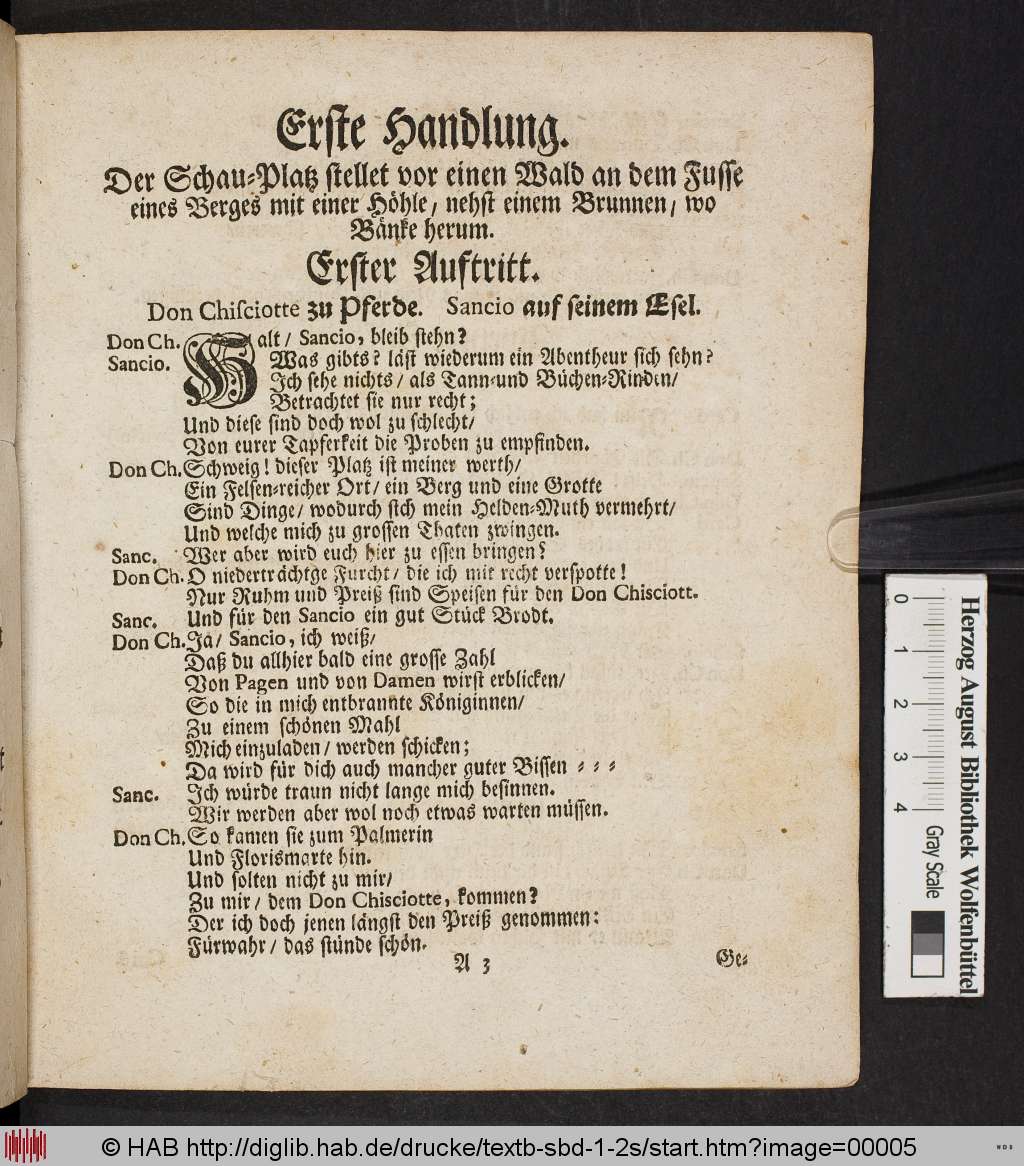 Erſte Handlung.
Der Schau-Platz ſtellet vor einen Wald an dem Fuſſe
eines Berges mit einer Höhle/ nebſt einem Brunnen/ wo
Bänke herum.
Erſter Auftritt.
Don Chiſciotte zu Pferde. Sancio auf ſeinem Eſel.
Don Ch. Halt/ Sancio, bleib ſtehn?
Sancio. Was gibts? läſt wiederum ein Abentheur ſich ſehn?
Ich ſehe nichts/ als Tann-und Büchen-Rinden/
Betrachtet ſie nur recht;
Und dieſe ſind doch wol zu ſchlecht/
Von eurer Tapferkeit die Proben zu empfinden.
Don Ch. Schweig! dieſer Platz iſt meiner werth/
Ein Felſen-reicher Ort/ ein Berg und eine Grotte
Sind Dinge/ wodurch ſich mein Helden-Muth vermehrt/
Und welche mich zu groſſen Thaten zwingen.
Sanc. Wer aber wird euch hier zu eſſen bringen?
Don Ch. O niederträchtge Furcht/ die ich mit recht verſpotte!
Nur Ruhm und Preiß ſind Speiſen für den Don Chisciott.
Sanc. Und für den Sancio ein gut Stück Brodt.
Don Ch. Ja/ Sancio, ich weiß/
Daß du allhier bald eine groſſe Zahl
Von Pagen und von Damen wirſt erblicken/
So die in mich entbrannte Königinnen/
Zu einem ſchönen Mahl
Mich einzuladen/ werden ſchicken;
Da wird für dich auch mancher guter Biſſen - - -
Sanc. Ich würde traun nicht lange mich beſinnen.
Wir werden aber wol noch etwas warten müſſen.
Don Ch. So kamen ſie zum Palmerin
Und Florismarte hin.
Und ſolten nicht zu mir/
Zu mir/ dem Don Chisciotte, kommen?
Der ich doch jenen längſt den Preiß genommen:
Fürwahr/ das ſtünde ſchön.
A 3 Ge-
0 1 2 3 4
Gray Scale
Herzog August Bibliothek Wolfenbüttel
© HAB http://diglib.hab.de/drucke/textb-sbd-1-2s/start.htm?image=00005